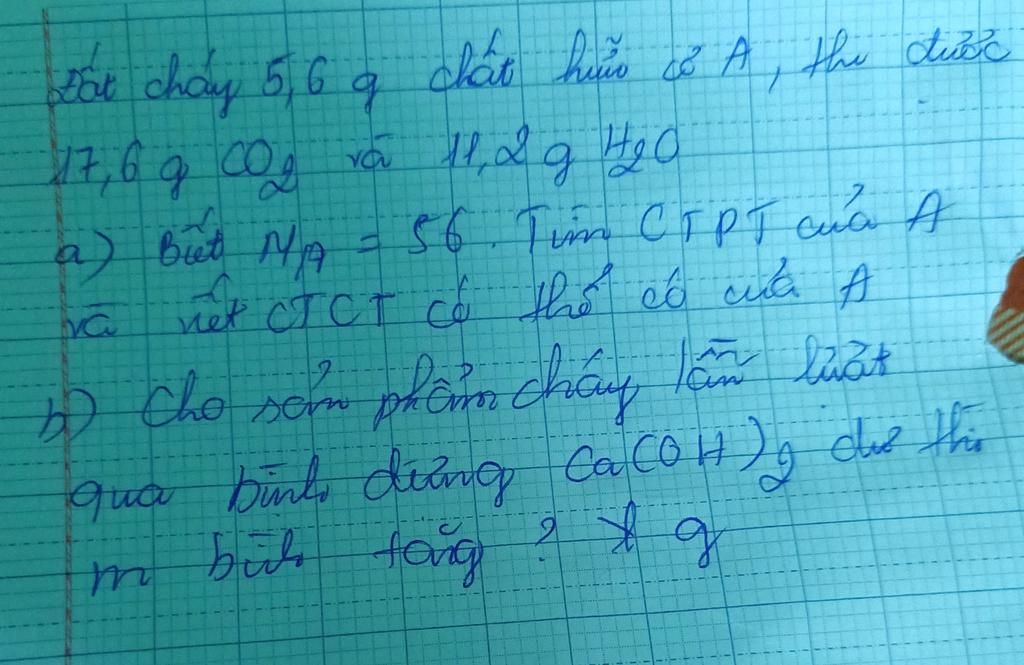 Đốt cháy 5,6 g chất hữu cơ A, thu được
17,6 g CO2 và 11,2 g H2O
a) Biết MA = 56. Tìm CTPT của A
và viết CTCT có thể có của A
b) Cho sản phẩm cháy lần lượt
qua bình đựng Ca(OH)2 dư thì
m bình tăng ? g